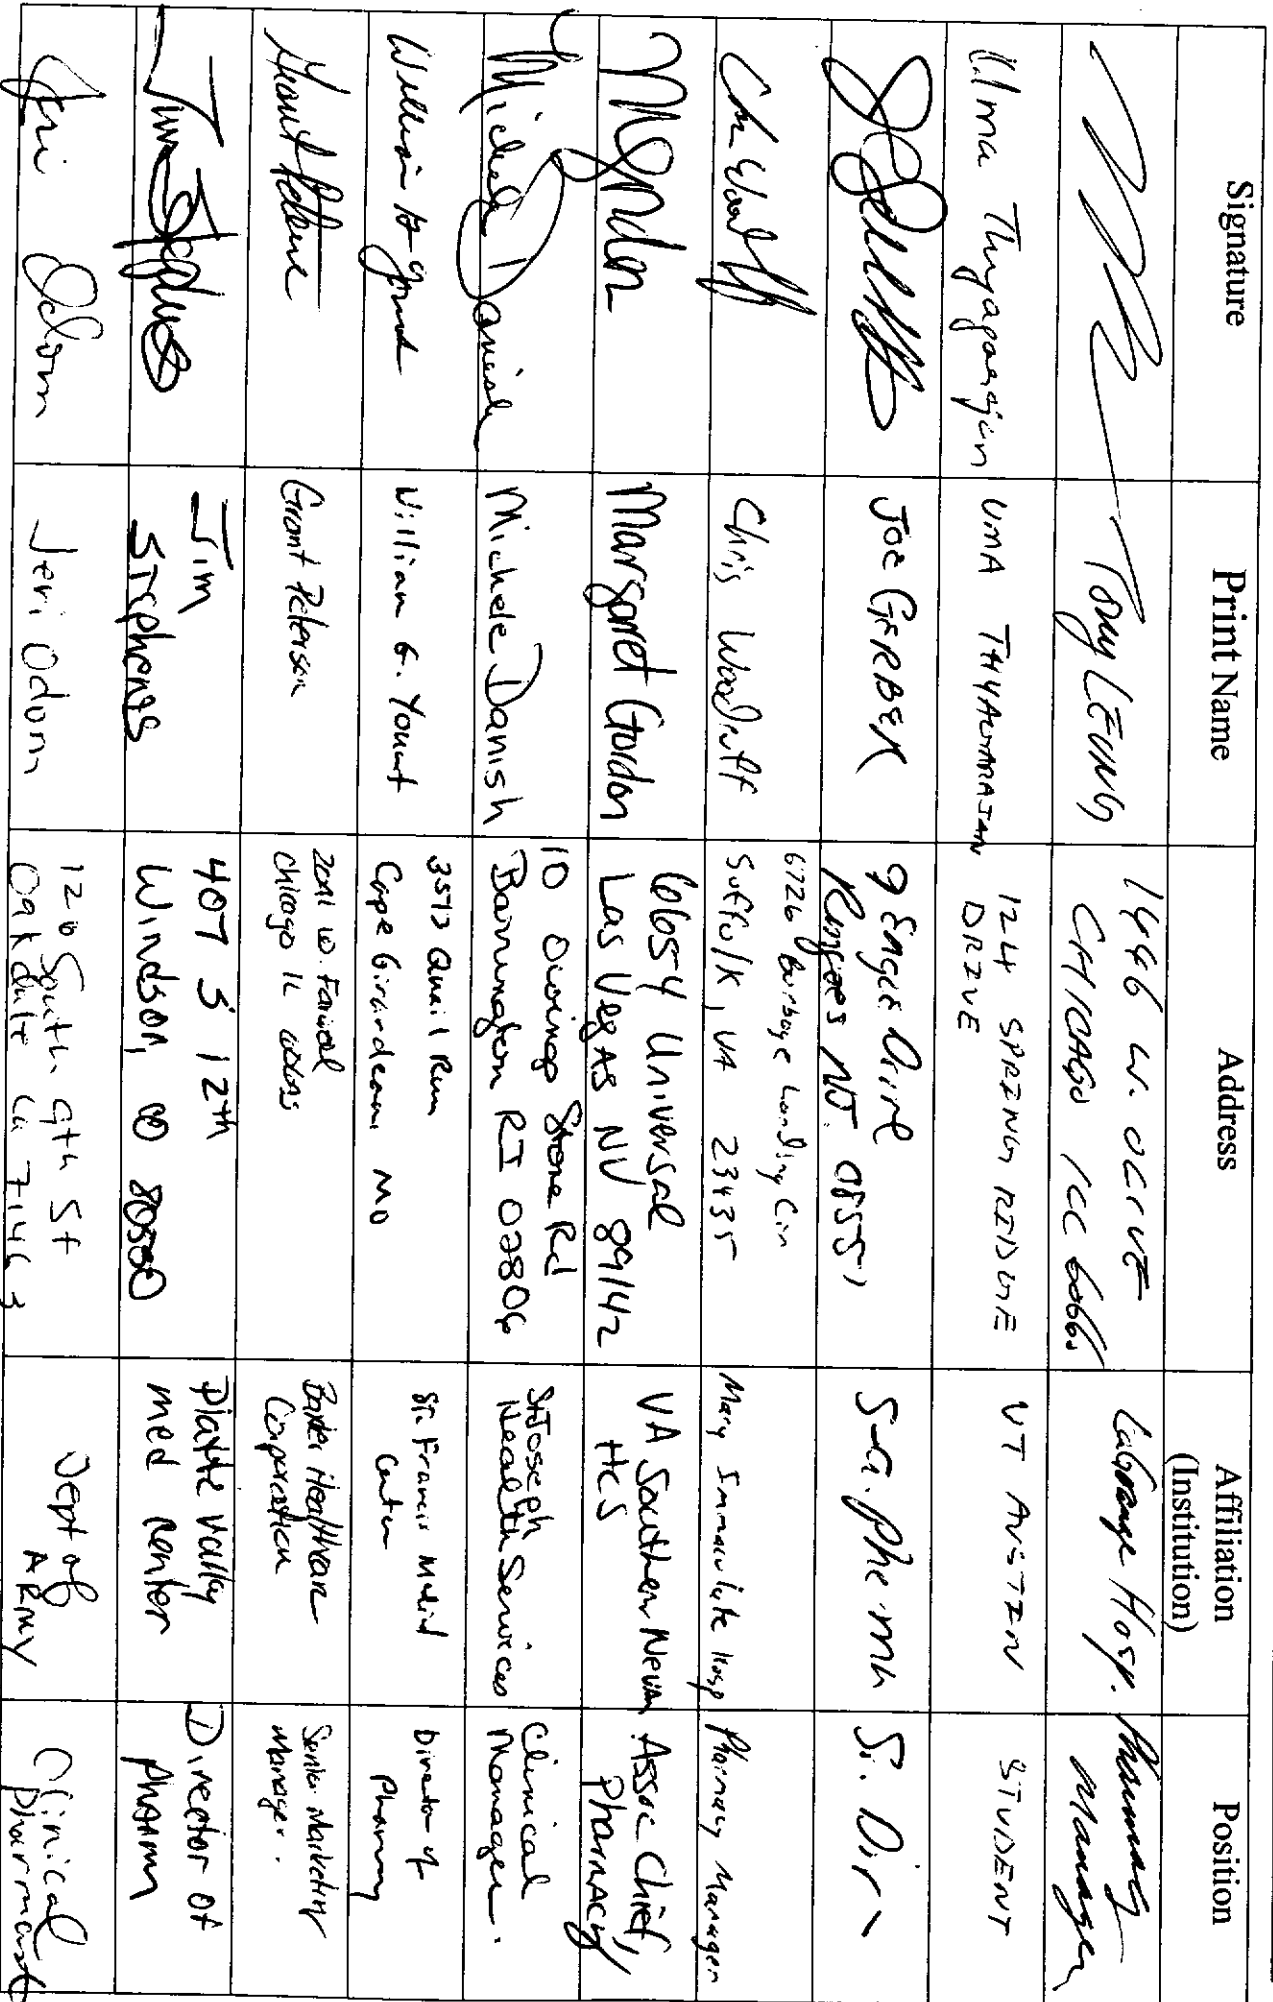 Signature Print Name Address Affiliation (Institution) Position
Tony LEUNG
CHICAGO
LaGrange Hosp.
Pharmacy
Manager
Uma Thyagarajan
UMA THYAGARAJAN
124 SPRING RIDGE
DRIVE
UT AUSTIN
STUDENT
Joe GERBER
9 Eagle Drive
NJ 08551
Chris Woodruff
6726 Burbage Landing Cir
Suffolk, VA 23435
Mary Immaculate Hosp
Pharmacy Manager
Margaret Gordon
6654 Universal
Las Vegas NV 89142
VA Southern Nevada
HCS
Assoc Chief,
Pharmacy
Michele Danish
Michele Danish
10 Divining Stone Rd
Barrington RI 02806
St Joseph
Health Services
Clinical
Manager.
William G. Yount
3573 Quail Run
Cape Girardeau MO
St. Francis Medical
Center
Director of
Pharmacy
Grant Peterson
Chicago IL
Baxter Healthcare
Corporation
Senior Marketing
Manager.
Jim Stephens
Jim
Stephens
407 S 12th
Windsor, CO 80550
Platte Valley
Med Center
Director of
Pharm
Jeri Odom
Jeri Odom
120 South 9th St
Oakdale La 71463
Dept of
ARMY
Clinical
Pharmacist